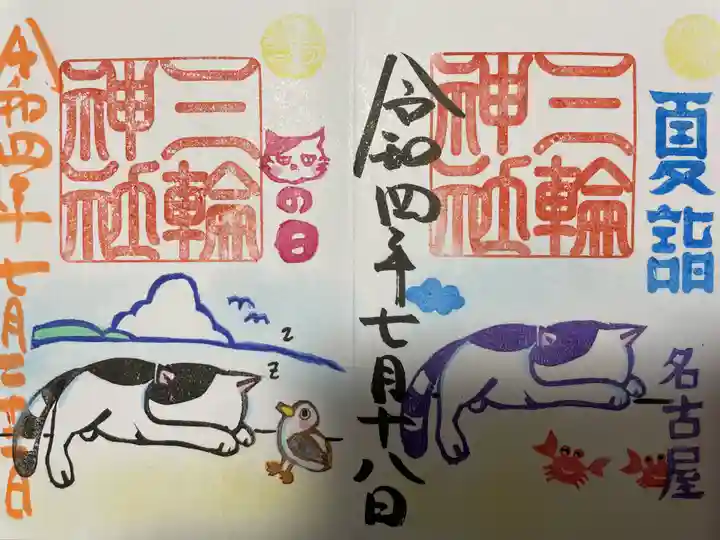 夏詣
名古屋
三輪
神社
令和四年七月十八日
の日
三輪
神社
令和四年七月二十二日
z
z